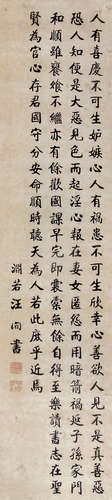 人有喜慶不可生妒嫉心人有禍患不可生欣幸心善欲人見不是真善惡
恐人知便是大惡見色而起淫心報在妻女匿怨而用暗箭禍延子孫家門
和順雖饔飧不繼亦有餘歡國課早完即囊橐無餘自得至樂讀書志在聖
賢為官心存君國守分安命順時聽天為人若此庶乎近焉
淵若汪洵書